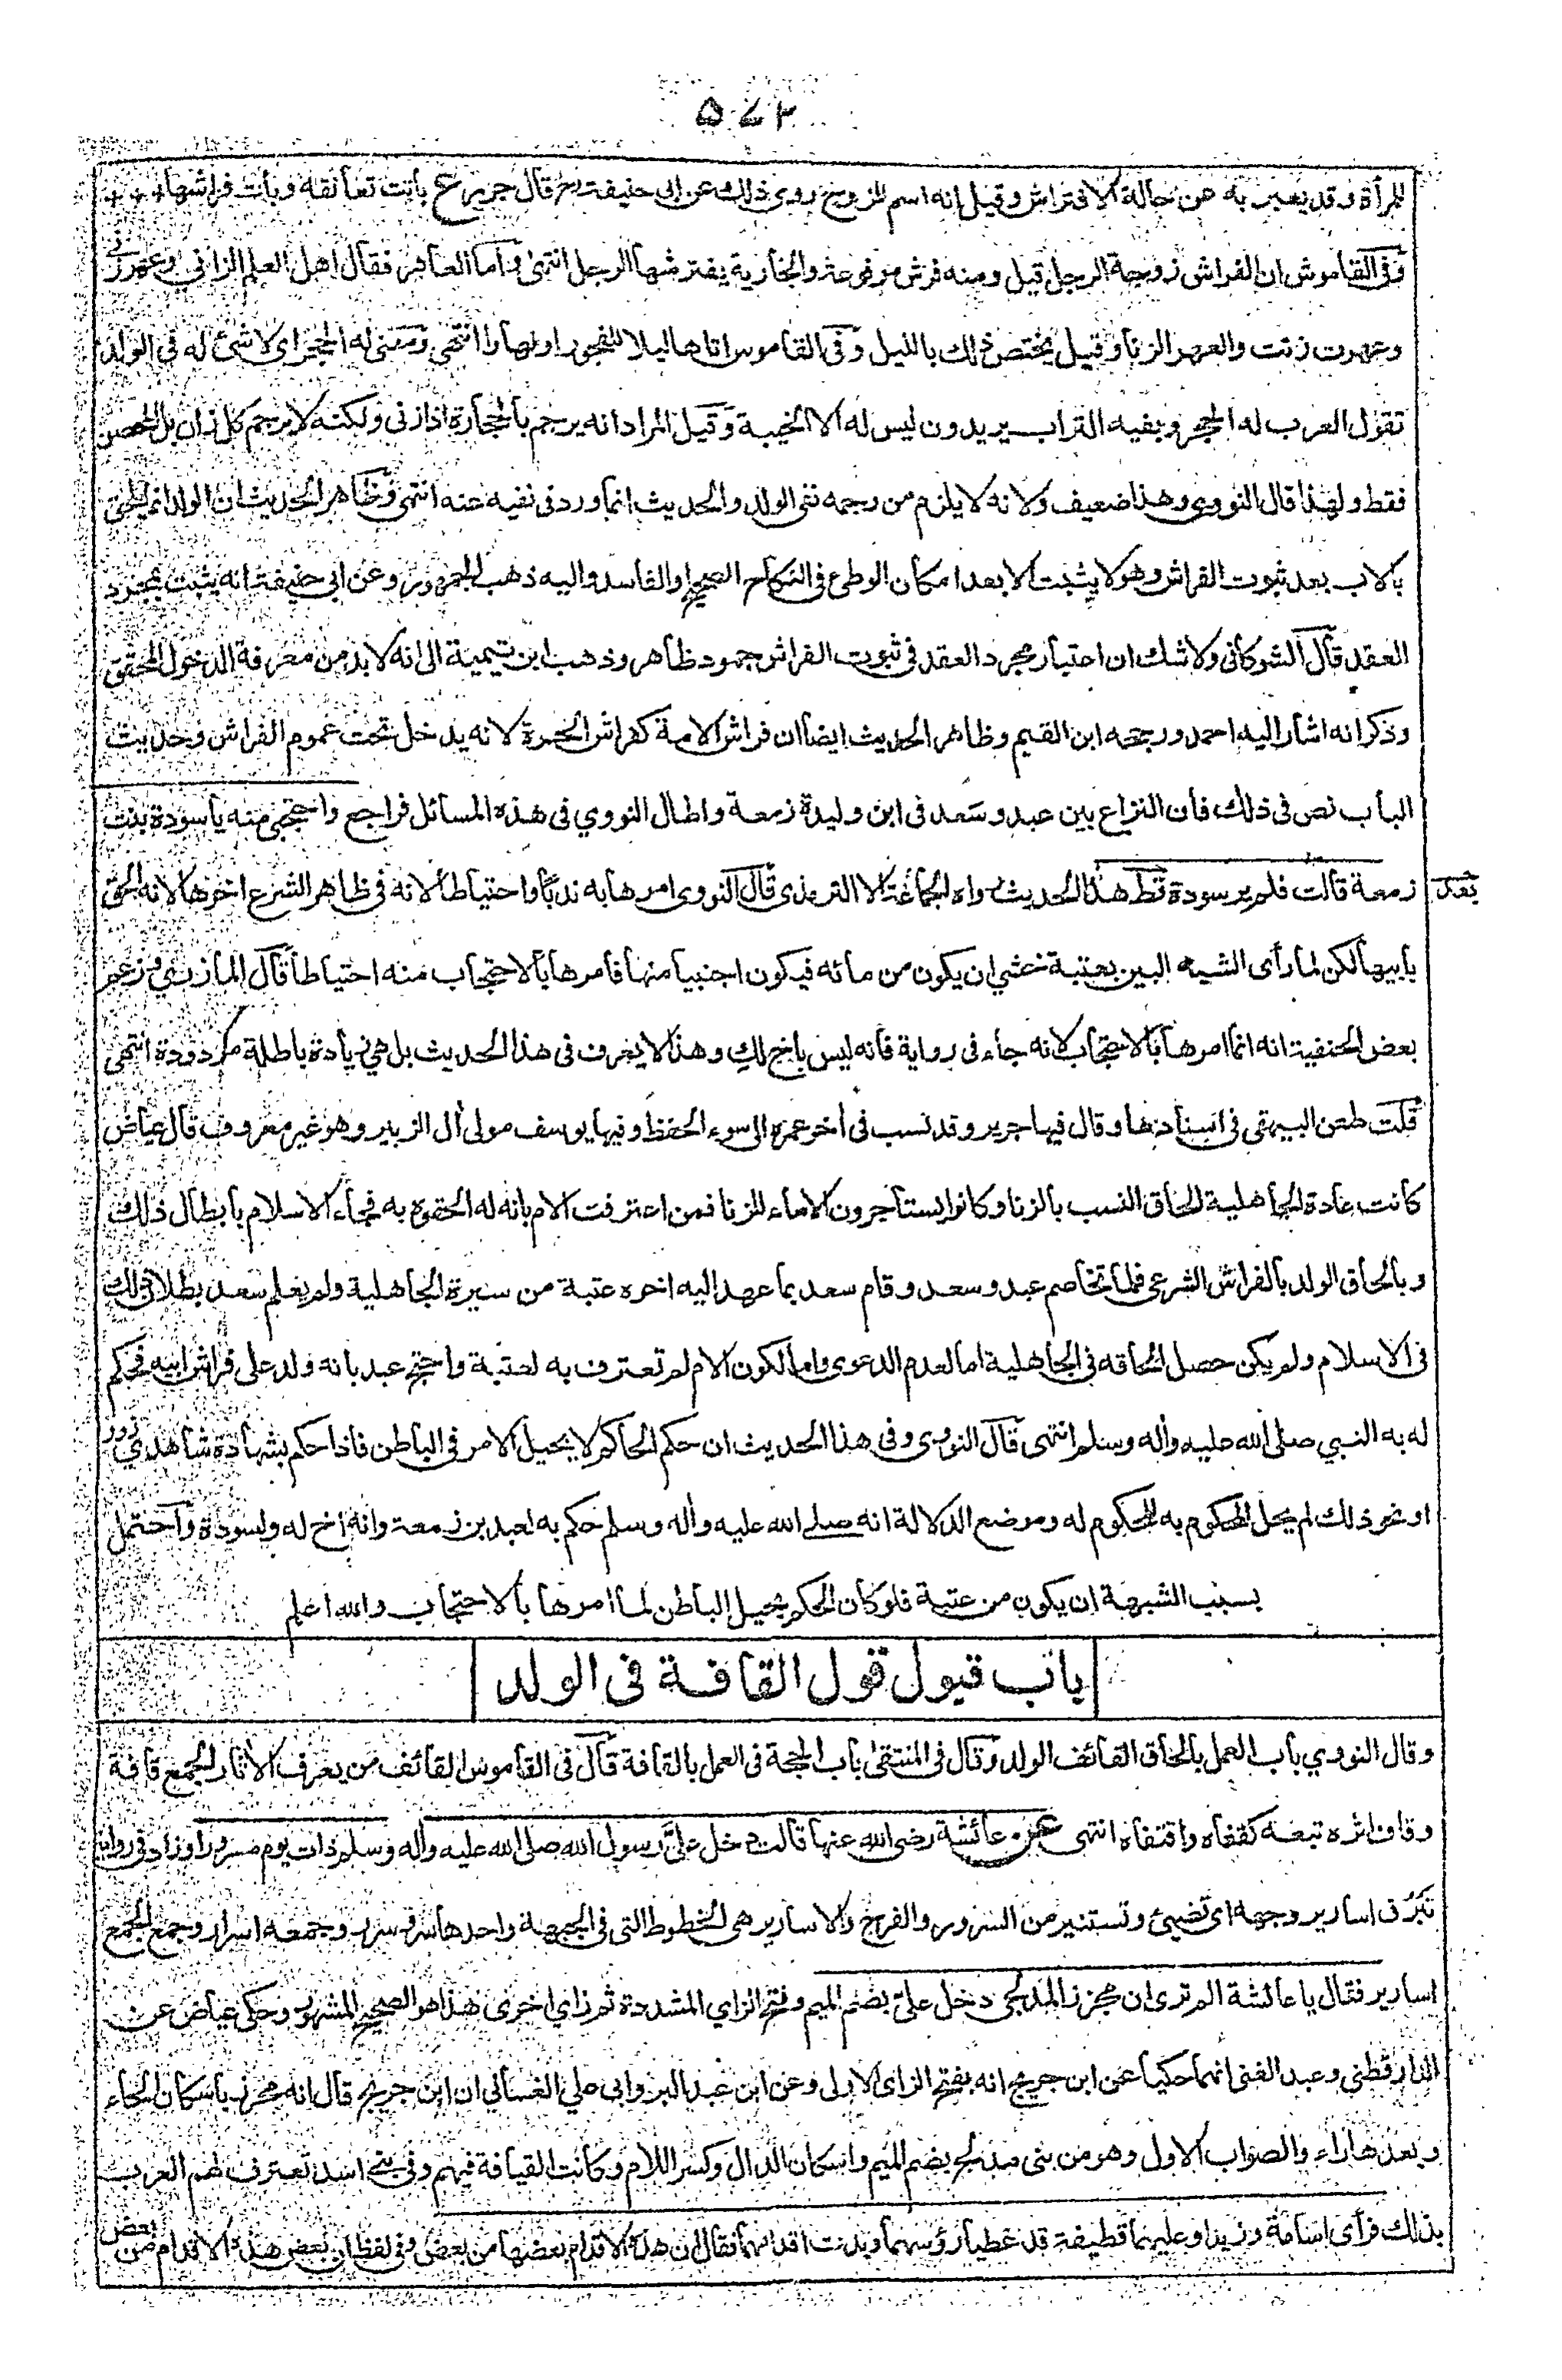 ٥٧٣
للمرأة وقد يعبر به عن حالة الافتراش وقيل انه اسم للزوج روى ذلك عن ابي حنيفة رح قال جرير ع باتت تعانقه وبات فراشها
وفي القاموش ان الفراش زوجة الرجل قيل ومنه فرش مرفوعة والجارية يفترشها الرجل انتهى واما العاهر فقال اهل العلم الزاني وعهر زنى
وعهرت زنت والعهر الزنا وقيل يختص ذلك بالليل وفي القاموس اتاها ليلا للفجور او نهارا انتهى ومعنى له الحجر اي لا شئ له في الولد
تقول العرب له الحجر وبفيه التراب يريدون ليس له الا الخيبة وقيل المراد انه يرجم بالحجارة اذا زنى ولكنه لا يرجم كل زان بل المحصن
فقط ولهذا قال النووي وهذا ضعيف ولانه لا يلزم من رجمه نفى الولد والحديث انما ورد في نفيه عنه انتهى وظاهر الحديث ان الولد انما يلحق
بالاب بعد ثبوت الفراش وهو لا يثبت الا بعد امكان الوطى في النكاح الصحيح او الفاسد واليه ذهب الجمهور وعن ابي حنيفة انه يثبت بمجرد
العقد قال الشوكاني ولا شك ان اعتبار مجرد العقد في ثبوت الفراش جمود ظاهر وذهب ابن تيمية الى انه لا بد من معرفة الدخول المحقق
وذكر انه اشار اليه احمد ورجحه ابن القيم وظاهر الحديث ايضا ان فراش الامة كفراش الحرة لانه يدخل تحت عموم الفراش وحديث
الباب نص في ذلك فان النزاع بين عبد وسعد في ابن وليدة زمعة واطال النووي في هذه المسائل فراجع واحتجبي منه يا سودة بنت
زمعة قالت فلم ير سودة قط هذا الحديث رواه الجماعة الا الترمذي قال النووى امرها به ندبا واحتياطا لانه في ظاهر الشرع اخوها لانه الحق
بعد
بابيها لكن لما رأى الشبه البين بعتبة خشي ان يكون من مائه فيكون اجنبيا منها فامرها بالاحتجاب منه احتياطا قال المازري وزعم
بعض الحنفية انه انما امرها بالاحتجاب لانه جاء في رواية فانه ليس باخ لك وهذا لا يعرف في هذا الحديث بل هي زيادة باطلة مردودة انتهى
قلت طعن البيهقي في اسنادها وقال فيها جرير وقد نسب في آخر عمره الى سوء الحفظ وفيها يوسف مولى آل الزبير وهو غير معروف قال عياض
كانت عادة الجاهلية الحاق النسب بالزنا وكانوا يستأجرون الاماء للزنا فمن اعترفت الام بانه له الحقوه به فجاء الاسلام بابطال ذلك
وبالحاق الولد بالفراش الشرعي فلما تخاصم عبد وسعد وقام سعد بما عهد اليه اخوه عتبة من سيرة الجاهلية ولم يعلم سعد بطلان ذلك
في الاسلام ولم يكن حصل الحاقه في الجاهلية اما لعدم الدعوى واما لكون الام لم تعترف به لعتبة واحتج عبد بانه ولد على فراش ابيه فحكم
له به النبي صلى الله عليه وآله وسلم انتهى قال النووي وفي هذا الحديث ان حكم الحاكم لا يحيل الامر في الباطن فاذا حكم بشهادة شاهدي زور
او نحو ذلك لم يحل المحكوم به للمحكوم له وموضع الدلالة انه صلى الله عليه وآله وسلم حكم به لعبد بن زمعة وانه اخ له ولسودة واحتمل
بسبب الشبهة ان يكون من عتبة فلو كان الحكم يحيل الباطن لما امرها بالاحتجاب والله اعلم
باب قبول قول القافة في الولد
وقال النووي باب العمل بالحاق القائف الولد وقال في المنتقى باب الحجة في العمل بالقافة قال في القاموس القائف من يعرف الآثار الجمع قافة
وقاف اثره تبعه كقفاه واقتفاه انتهى عن عائشة رضي الله عنها قالت دخل علي رسول الله صلى الله عليه وآله وسلم ذات يوم مسرورا وزاد في رواية
تبرق اسارير وجهه اي تضيئ وتستنير من السرور والفرح والاسارير هى الخطوط التي في الجبهة واحدها سر وسرر وجمعه اسرار وجمع الجمع
اسارير فقال يا عائشة الم ترى ان مجزز المدلجى دخل علي بضم الميم وفتح الزاي المشددة ثم زاي اخرى هذا هو الصحيح المشهور وحكى عياض عن
الدارقطني وعبد الغني انهما حكيا عن ابن جريج انه بفتح الزاى الاولى وعن ابن عبد البر وابي علي الغساني ان ابن جريج قال انه محرز باسكان الحاء
وبعدها راء والصواب الاول وهو من بنى مدلج بضم الميم واسكان الدال وكسر اللام وكانت القيافة فيهم وفي بني اسد تعترف لهم العرب
بذلك فرأى اسامة وزيدا وعليهما قطيفة قد غطيا رؤسهما وبدت اقدامهما فقال ان هذه الاقدام بعضها من بعض وفي لفظ ان بعض هذه الاقدام من بعض